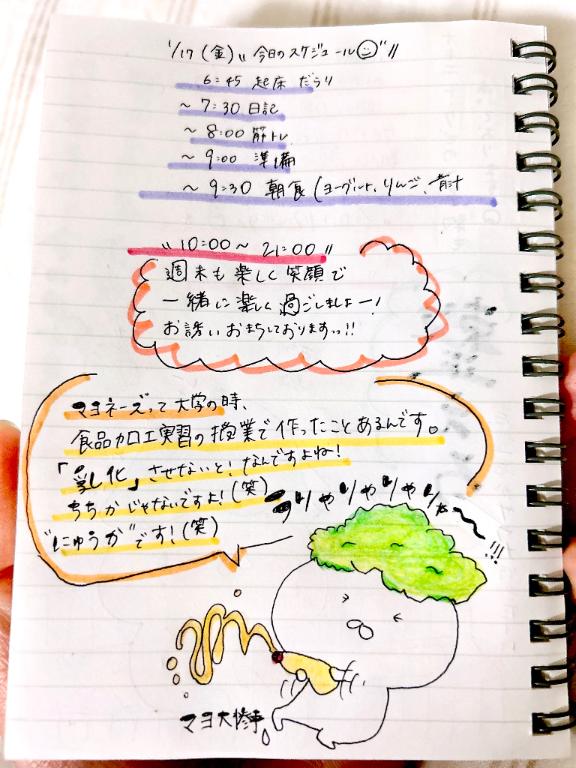 1/17 (金) 〃今日のスケジュール☺〃
6:45 起床 だらり
～7:30 日記
～8:00 筋トレ
～9:00 準備
～9:30 朝食 (ヨーグルト、りんご、青汁
〃10:00～21:00〃
週末も楽しく笑顔で
一緒に楽しく過ごしましょー!
お誘いおまちしておりますッ!!
マヨネーズって大学の時、
食品加工実習の授業で作ったことあるんです。
「乳化」させないと!なんですよね!
ちちかじゃないですよ!(笑)
"にゅうか"です!(笑)
うりゃりゃりゃりゃ～!!!
マヨ大惨事